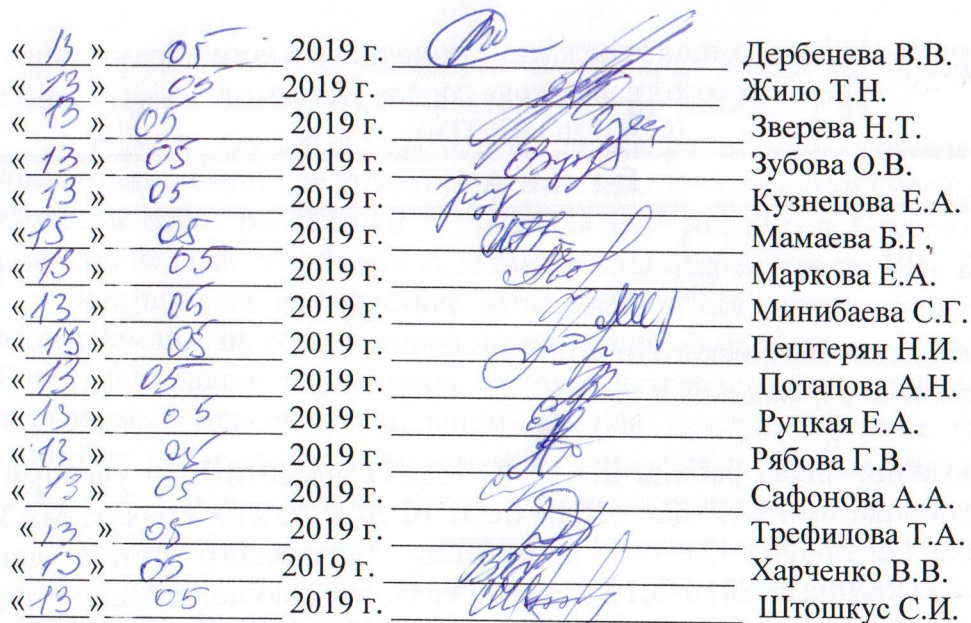 «13» 05 2019 г. Дербенева В.В.
«13» 05 2019 г. Жило Т.Н.
«13» 05 2019 г. Зверева Н.Т.
«13» 05 2019 г. Зубова О.В.
«13» 05 2019 г. Кузнецова Е.А.
«15» 05 2019 г. Мамаева Б.Г.
«13» 05 2019 г. Маркова Е.А.
«13» 05 2019 г. Минибаева С.Г.
«13» 05 2019 г. Пештерян Н.И.
«13» 05 2019 г. Потапова А.Н.
«13» 05 2019 г. Руцкая Е.А.
«13» 05 2019 г. Рябова Г.В.
«13» 05 2019 г. Сафонова А.А.
«13» 05 2019 г. Трефилова Т.А.
«13» 05 2019 г. Харченко В.В.
«13» 05 2019 г. Штошкус С.И.